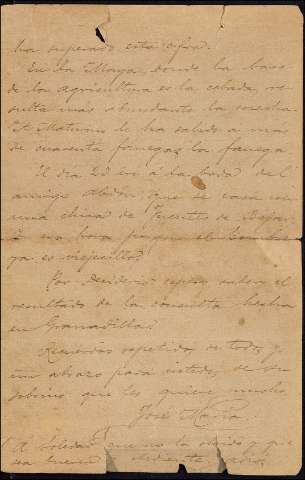 ha superado esta cifra.
En La Maya, donde la base
de la agricultura es la cebada, re-
sulta más abundante la cosecha.
A Maturino le ha salido a más
de cuarenta fanegas la fanega.
El día 20 voy á la boda del
amigo Abdón, que se casa con
una chica de Fuentes de Béjar.
á su hora porque el hombre
ya es viejecillo.
Por Desiderio espero saber el
resultado de la consulta hecha
en Granadilla.
Recuerdos repetidos de todos y
un abrazo para ustedes de su
sobrino que les quiere mucho,
José María
A Soledad que no la olvido y que
sea buena